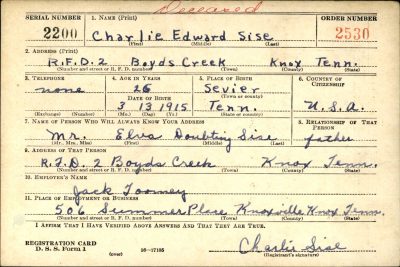 Deceased
SERIAL NUMBER 1. NAME (Print) ORDER NUMBER
2200 Charlie Edward Sise 2530
(First) (Middle) (Last)
2. ADDRESS (Print)
R.F.D. 2 Boyds Creek Knox Tenn.
(Number and street or R. F. D. number) (Town) (County) (State)
3. TELEPHONE 4. AGE IN YEARS 5. PLACE OF BIRTH 6. COUNTRY OF CITIZENSHIP
none 26 Sevier
DATE OF BIRTH (Town or county)
3 13 1915 Tenn. U.S.A.
(Exchange) (Number) (Mo.) (Day) (Yr.) (State or country)
7. NAME OF PERSON WHO WILL ALWAYS KNOW YOUR ADDRESS 8. RELATIONSHIP OF THAT PERSON
Mr. Doubting Sise father
(Mr., Mrs., Miss) (First) (Middle) (Last)
9. ADDRESS OF THAT PERSON
R.F.D. 2 Boyds Creek Knox Tenn.
(Number and street or R. F. D. number) (Town) (County) (State)
10. EMPLOYER'S NAME
Jack Toomey
11. PLACE OF EMPLOYMENT OR BUSINESS
506 Summer Place Knoxville Knox Tenn.
(Number and street or R. F. D. number) (Town) (County) (State)
I AFFIRM THAT I HAVE VERIFIED ABOVE ANSWERS AND THAT THEY ARE TRUE.
REGISTRATION CARD
D. S. S. Form 1 (over) 16—17105 Charlie Sise
(Registrant's signature)